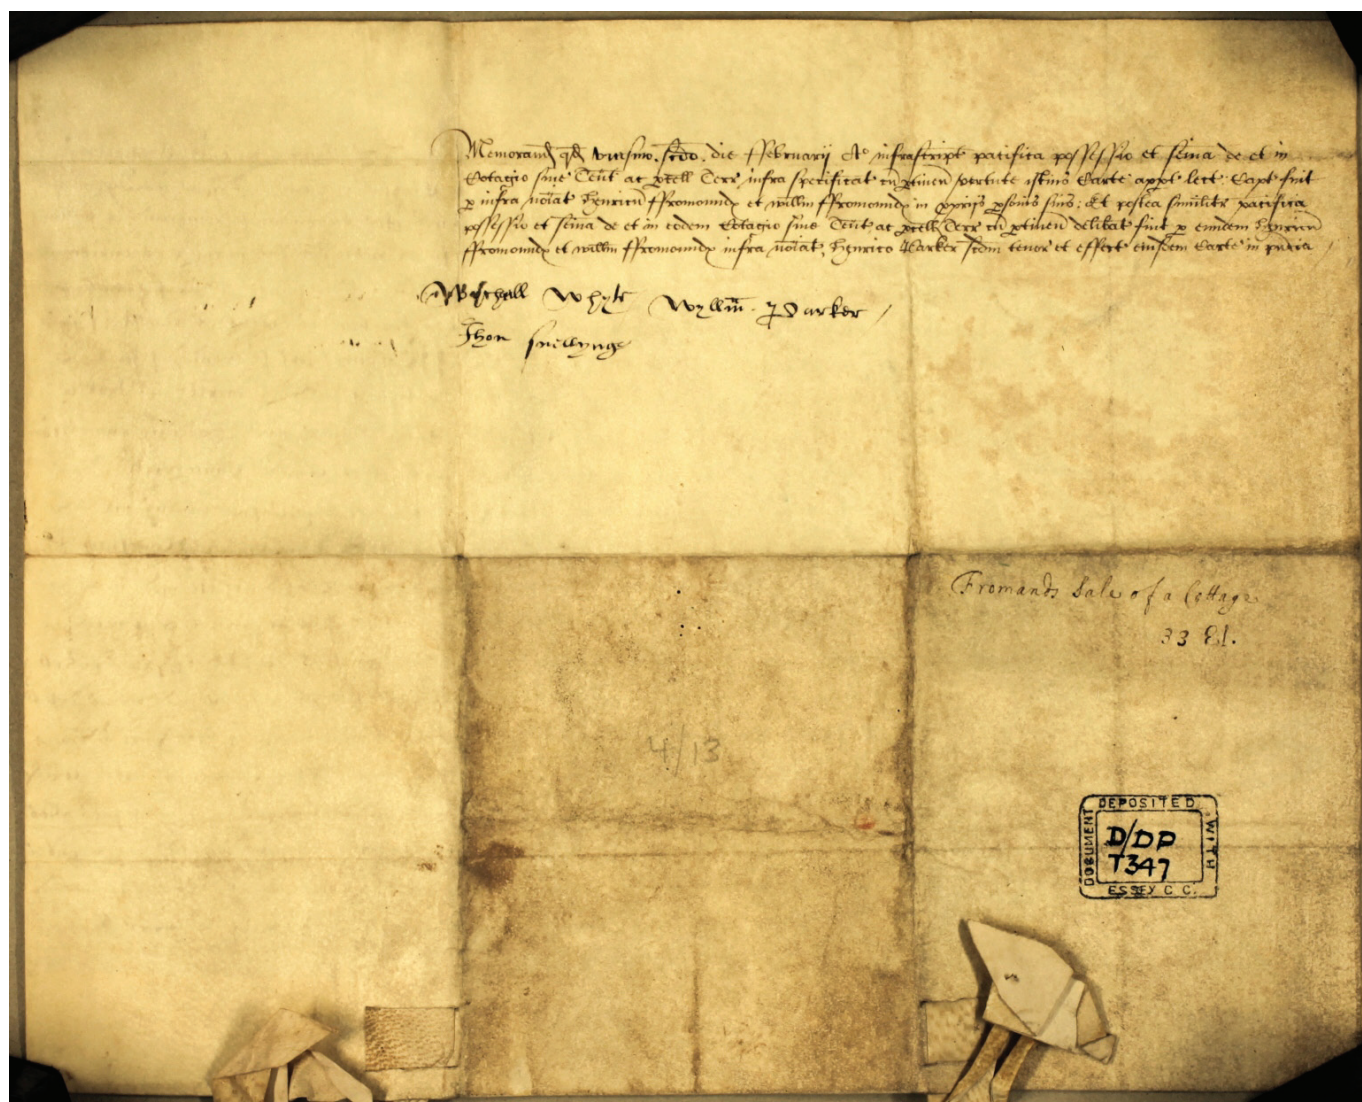 Memorand qd vicesimo scdo die ffebruarij Ao infrascript pacifica possessio et seina de et in
Cotagio sive Tent ac pcell Terr infra specificat cu ptinen vertute istius Carte appt lect Capt fuit
p infra noiat Henricu ffromound et willm ffromound in pprijs psonis suis Et postea similitr pacifica
possessio et seina de et in eodem Cotagio sive Tent ac pcell Terr cu ptinen delibat fuit p eundem Henricu
ffromound et willm ffromound infra noiat Henrico Parker scdm tenor et effect eiusdem Carte in
Whyte Wyllm Parker
Jhon Snellynge
Fromands Sale of a Cottage
33 El.
4/13
DOCUMENT DEPOSITED WITH
D/DP
T347
ESSEX C C.